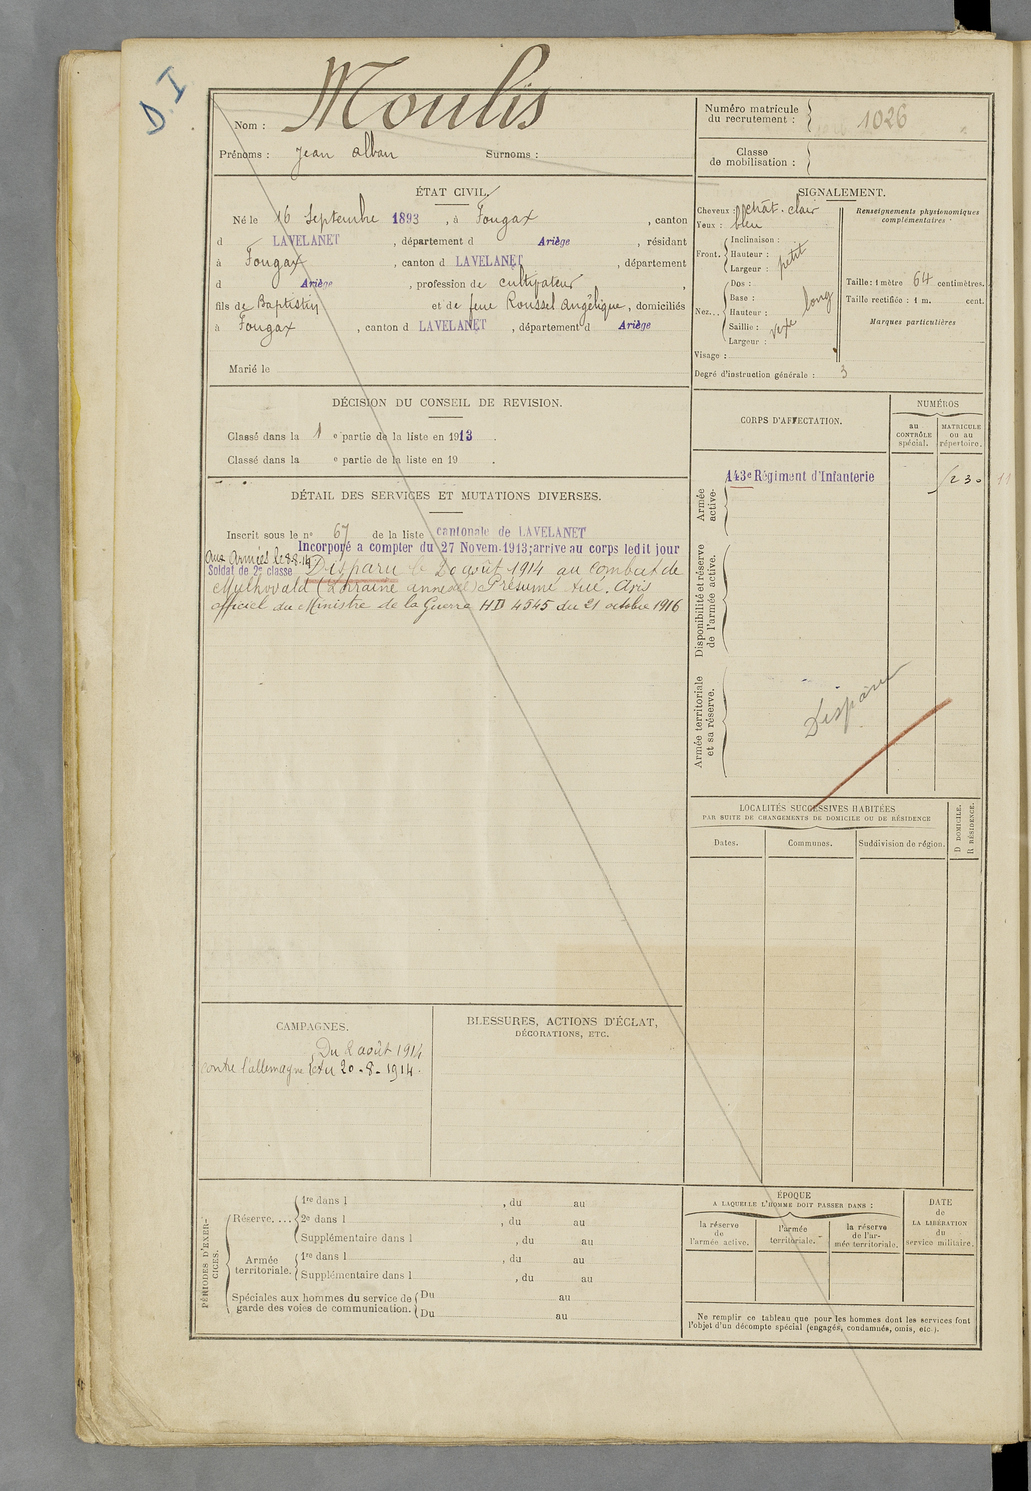 D.I
Nom : Moulis
Prénoms : Jean Alban Surnoms :
Numéro matricule du recrutement : 1026
Classe de mobilisation :
ÉTAT CIVIL.
Né le 16 Septembre 1893, à Fougax, canton
d LAVELANET, département d Ariège, résidant
à Fougax, canton d LAVELANET, département
d Ariège, profession de cultivateur,
fils de Baptistin et de feue Roussel Angélique, domiciliés
à Fougax, canton d LAVELANET, département d Ariège
Marié le
SIGNALEMENT.
Cheveux : chât. clair
Yeux : bleu
Front. Inclinaison :
Hauteur :
Largeur : petit
Nez... Dos :
Base : long
Hauteur :
Saillie :
Largeur :
Visage :
Degré d'instruction générale : 3
Renseignements physionomiques complémentaires :
Taille : 1 mètre 64 centimètres.
Taille rectifiée : 1 m. cent.
Marques particulières
DÉCISION DU CONSEIL DE REVISION.
Classé dans la 1 e partie de la liste en 1913.
Classé dans la e partie de la liste en 19 .
DÉTAIL DES SERVICES ET MUTATIONS DIVERSES.
Inscrit sous le n° 67 de la liste cantonale de LAVELANET
Incorporé a compter du 27 Novem. 1913; arrive au corps ledit jour
aux Armées le 8.8.14
Soldat de 2e classe Disparu le 20 août 1914 au combat de
(Lorraine annexée) Présumé tué. Avis
officiel du Ministre de la Guerre HD 4545 du 21 octobre 1916
CORPS D'AFFECTATION.
NUMÉROS
au CONTRÔLE spécial.
MATRICULE ou au répertoire.
Armée active.
143e Régiment d'Infanterie
Disponibilité et réserve de l'armée active.
Armée territoriale et sa réserve.
Disparu
LOCALITÉS SUCCESSIVES HABITÉES
PAR SUITE DE CHANGEMENTS DE DOMICILE OU DE RÉSIDENCE
D DOMICILE.
R RÉSIDENCE.
Dates. Communes. Suddivision de région.
CAMPAGNES.
Du 2 août 1914
contre l'allemagne au 20-8-1914.
BLESSURES, ACTIONS D'ÉCLAT,
DÉCORATIONS, ETC.
PÉRIODES D'EXERCICES.
Réserve.... 1re dans l , du au
2e dans l , du au
Supplémentaire dans l , du au
Armée territoriale. 1re dans l , du au
Supplémentaire dans l , du au
Spéciales aux hommes du service de garde des voies de communication. Du au
Du au
ÉPOQUE
A LAQUELLE L'HOMME DOIT PASSER DANS :
la réserve de l'armée active.
l'armée territoriale.
la réserve de l'armée territoriale.
DATE de LA LIBÉRATION du service militaire.
Ne remplir ce tableau que pour les hommes dont les services font
l'objet d'un décompte spécial (engagés, condamnés, omis, etc.).